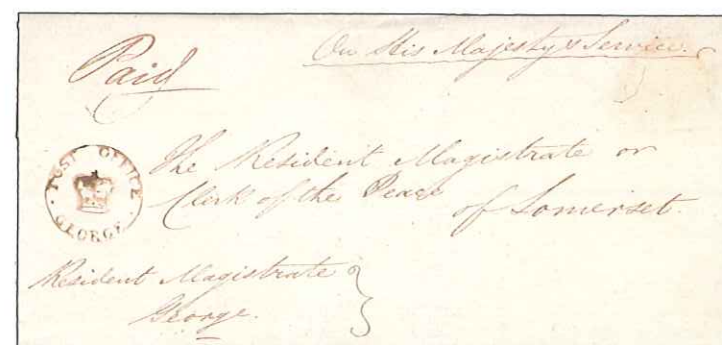 On His Majesty's Service.
Paid
POST OFFICE
GEORGE
The Resident Magistrate or
Clerk of the Peace
of Somerset.
Resident Magistrate
George.